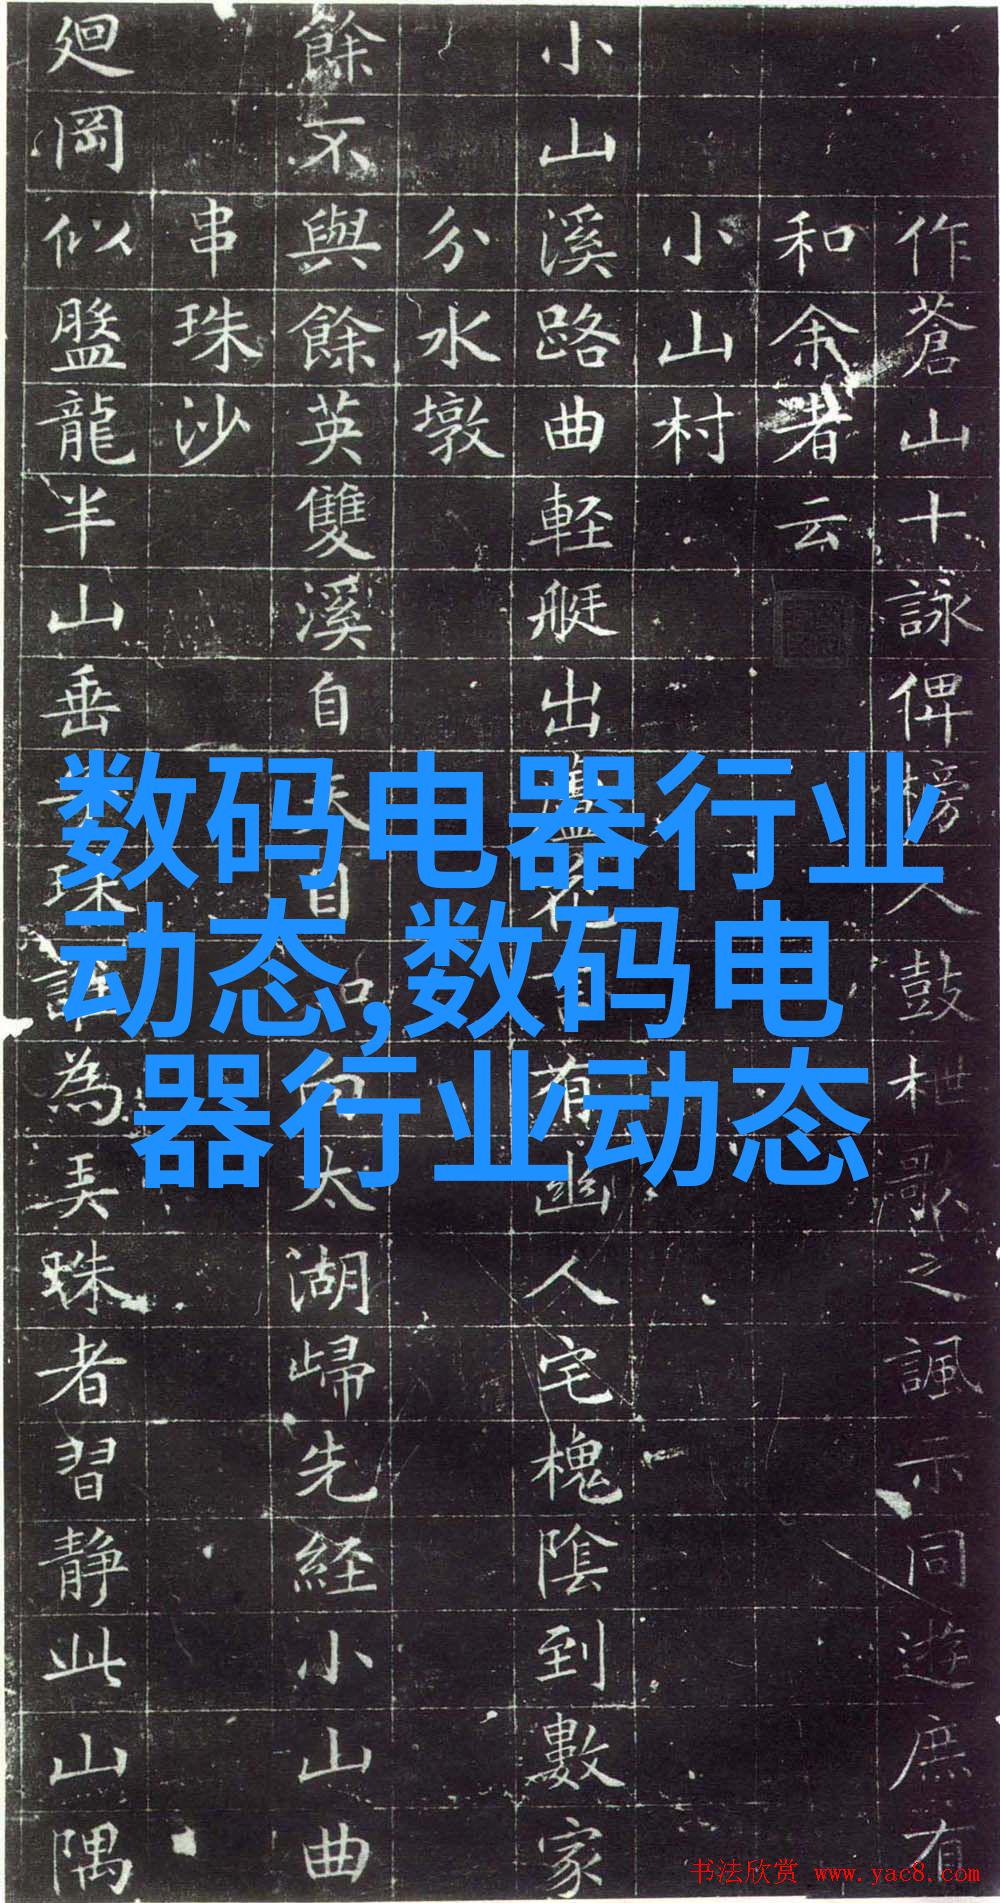 作蒼山十詠俾榜人鼓枻歌之諷示同遊庶有
和余者云
小山村
小山溪路曲軽艇出蘆花有幽人宅槐陰到數家
分水墩
餘不與餘英雙溪自天目向太湖歸先経小山曲
串珠沙
廻岡似盤龍半山垂珠誰為弄珠者習靜此山隅
数码电器行业
动态,数码电
器行业动态
书法欣赏 www.yac8.com